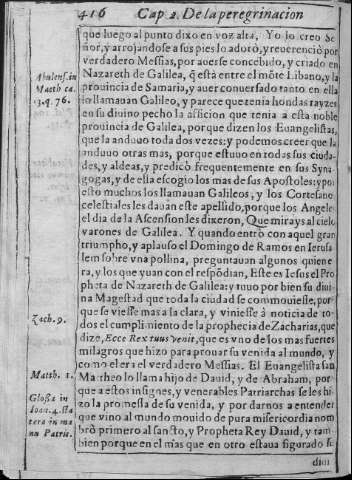 416 Cap. 2. De la peregrinacion
que luego al punto dixo en voz alta, Yo lo creo Se
ñor, y arrojandose a sus pies lo adorò, y reuerenciò por
verdadero Messias, por auerse concebido, y criado en
Nazareth de Galilea, q̃ està entre el mõte Libano, y la
prouincia de Samaria, y auer conuersado tanto en ella
lo llamauan Galileo, y parece que tenia hondas rayzes
en su diuino pecho la aficion que tenia a esta noble
prouincia de Galilea, porque dizen los Euangelistas,
que la anduuo toda dos vezes: y podemos creer que la
anduuo otras mas, porque estuuo en todas sus ciuda-
des, y aldeas, y predicò frequentemente en sus Syna-
gogas, y de ella escogio los mas de sus Apostoles: y por
esto muchos los llamauan Galileos, y los Cortesano
celestiales les dauan este apellido, porque los Angele
el dia de la Ascension les dixeron, Que mirays al cielo
varones de Galilea. Y quando entrò con aquel gran
triumpho, y aplauso el Domingo de Ramos en Ierusa
lem sobre vna pollina, preguntauan algunos quien e
ra, y los que yuan con el respõdian, Este es Iesus el Pro
pheta de Nazareth de Galilea: y tuuo por bien su diui
na Magestad que toda la ciudad se commouiesse, por
que se viesse mas a la clara, y viniesse à noticia de to-
dos el cumplimiento de la prophecia de Zacharias, que
dize, Ecce Rex tuus venit, que es vno de los mas fuertes
milagros que hizo para prouar su venida al mundo, y
como el era el verdadero Messias. El Euangelista san
Mattheo lo llama hijo de Dauid, y de Abraham, por
que a estos insignes, y venerables Patriarchas se les hi-
zo la promessa de su venida, y por darnos a entender
que vino al mundo mouido de pura misericordia nom
brò primero al sancto, y Propheta Rey Dauid, y tam
bien porque en el mas que en otro estaua figurado su
diui
Abulens. in
Matth ca.
13. q. 76.
Zach. 9.
Matth. 1.
Glossa in
Ioan. 4. sta
tera in ma
nu Patris.